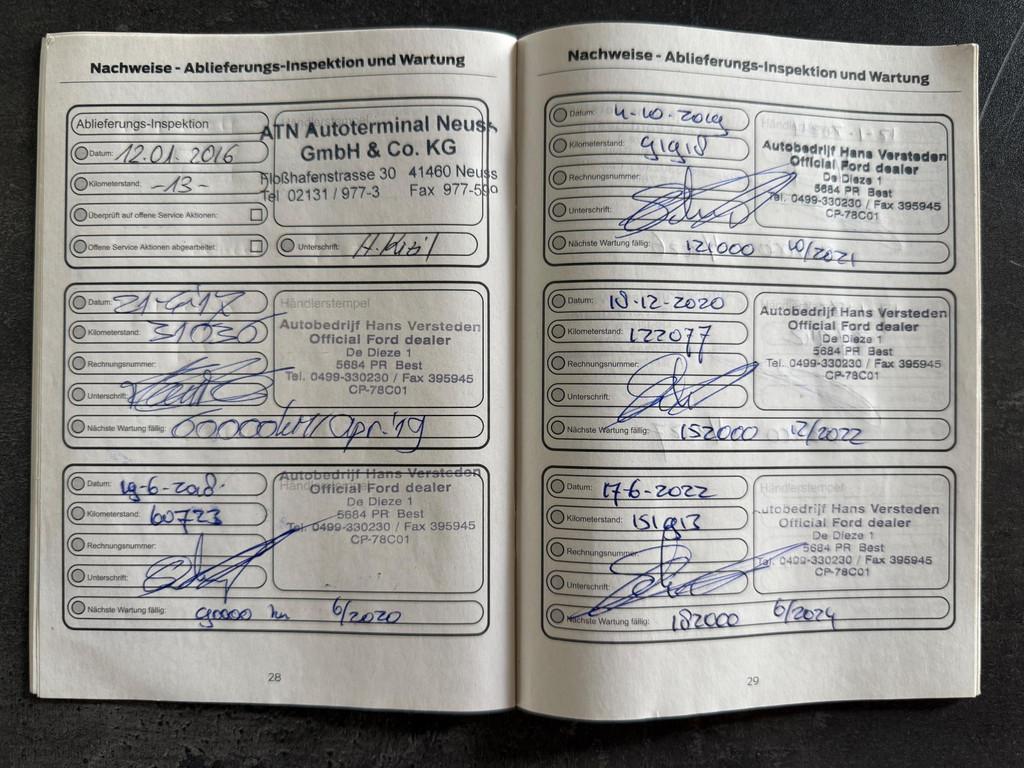 Nachweise - Ablieferungs-Inspektion und Wartung
Ablieferungs-Inspektion
Datum: 12.01.2016
Kilometerstand: -13-
Überprüft auf offene Service Aktionen:
Offene Service Aktionen abgearbeitet:
ATN Autoterminal Neuss
GmbH & Co. KG
Floßhafenstrasse 30 41460 Neuss
Tel 02131 / 977-3 Fax 977-590
Unterschrift: H. Kizil
Datum: 21-4-'17
Kilometerstand: 31030
Rechnungsnummer:
Unterschrift:
Nächste Wartung fällig: 60000km/Apr.'19
Händlerstempel
Autobedrijf Hans Versteden
Official Ford dealer
De Dieze 1
5684 PR Best
Tel. 0499-330230 / Fax 395945
CP-78C01
Datum: 19-6-2018
Kilometerstand: 60723
Rechnungsnummer:
Unterschrift:
Nächste Wartung fällig: 90000 km 6/2020
Autobedrijf Hans Versteden
Official Ford dealer
De Dieze 1
5684 PR Best
Tel. 0499-330230 / Fax 395945
CP-78C01
28
Nachweise - Ablieferungs-Inspektion und Wartung
Datum: 4-10-2019
Kilometerstand: 91918
Rechnungsnummer:
Unterschrift:
Nächste Wartung fällig: 121000 10/2021
Autobedrijf Hans Versteden
Official Ford dealer
De Dieze 1
5684 PR Best
Tel. 0499-330230 / Fax 395945
CP-78C01
Datum: 18-12-2020
Kilometerstand: 122077
Rechnungsnummer:
Unterschrift:
Nächste Wartung fällig: 152000 12/2022
Autobedrijf Hans Versteden
Official Ford dealer
De Dieze 1
5684 PR Best
Tel. 0499-330230 / Fax 395945
CP-78C01
Datum: 17-6-2022
Kilometerstand: 151913
Rechnungsnummer:
Unterschrift:
Nächste Wartung fällig: 182000 6/2024
Händlerstempel
Autobedrijf Hans Versteden
Official Ford dealer
De Dieze 1
5684 PR Best
Tel. 0499-330230 / Fax 395945
CP-78C01
29